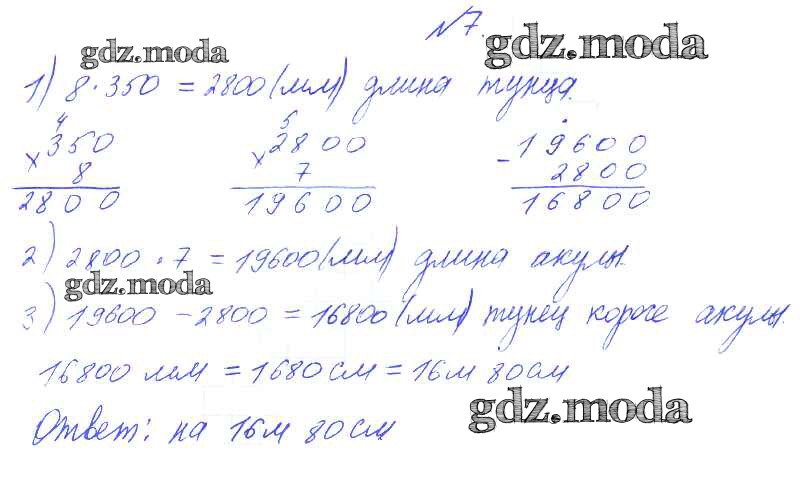 №7.
gdz.moda
gdz.moda
1) 8·350 = 2800 (мм) длина тунца.
4 5
×350 ×2800 -19600
8 7 2800
2800 19600 16800
2) 2800·7 = 19600 (мм) длина акулы.
gdz.moda
3) 19600 - 2800 = 16800 (мм) тунец короче акулы.
16800 мм = 1680 см = 16м 80см
gdz.moda
Ответ: на 16м 80см.